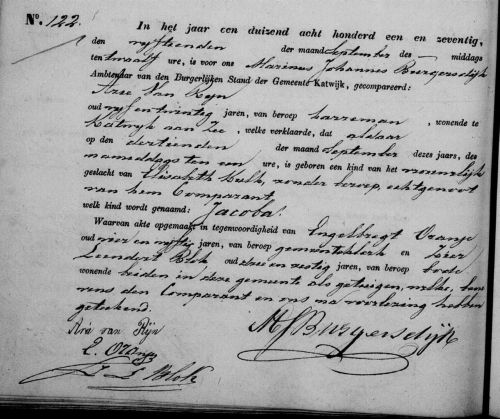 No. 122.
In het jaar een duizend acht honderd een en zeventig,
den vijftienden der maand September des – middags
ten twaalf ure, is voor ons Marinus Johannes Burgersdijk
Ambtenaar van den Burgerlijken Stand der Gemeente Katwijk, gecompareerd:
Arie Van Rijn
oud vijfentwintig jaren, van beroep karreman, wonende te
Katwijk aan Zee, welke verklaarde, dat aldaar
op den dertienden der maand September dezes jaars, des
namiddags ten een ure, is geboren een kind van het vrouwelijk
geslacht van Elisabeth zonder beroep, echtgenoot
van hem Comparant
welk kind wordt genaamd: Jacoba.
Waarvan akte opgemaakt in tegenwoordigheid van Engelbregt Oranje
oud vier en vijftig jaren, van beroep gemeenteklerk en
Leendert Blok oud drie en zestig jaren, van beroep bode
wonende beiden in deze gemeente als getuigen, welke, bene
vens den Comparant en ons na voorlezing hebben
geteekend.
Arie van Rijn
MJBurgersdijk
E. Oranje
L Blok